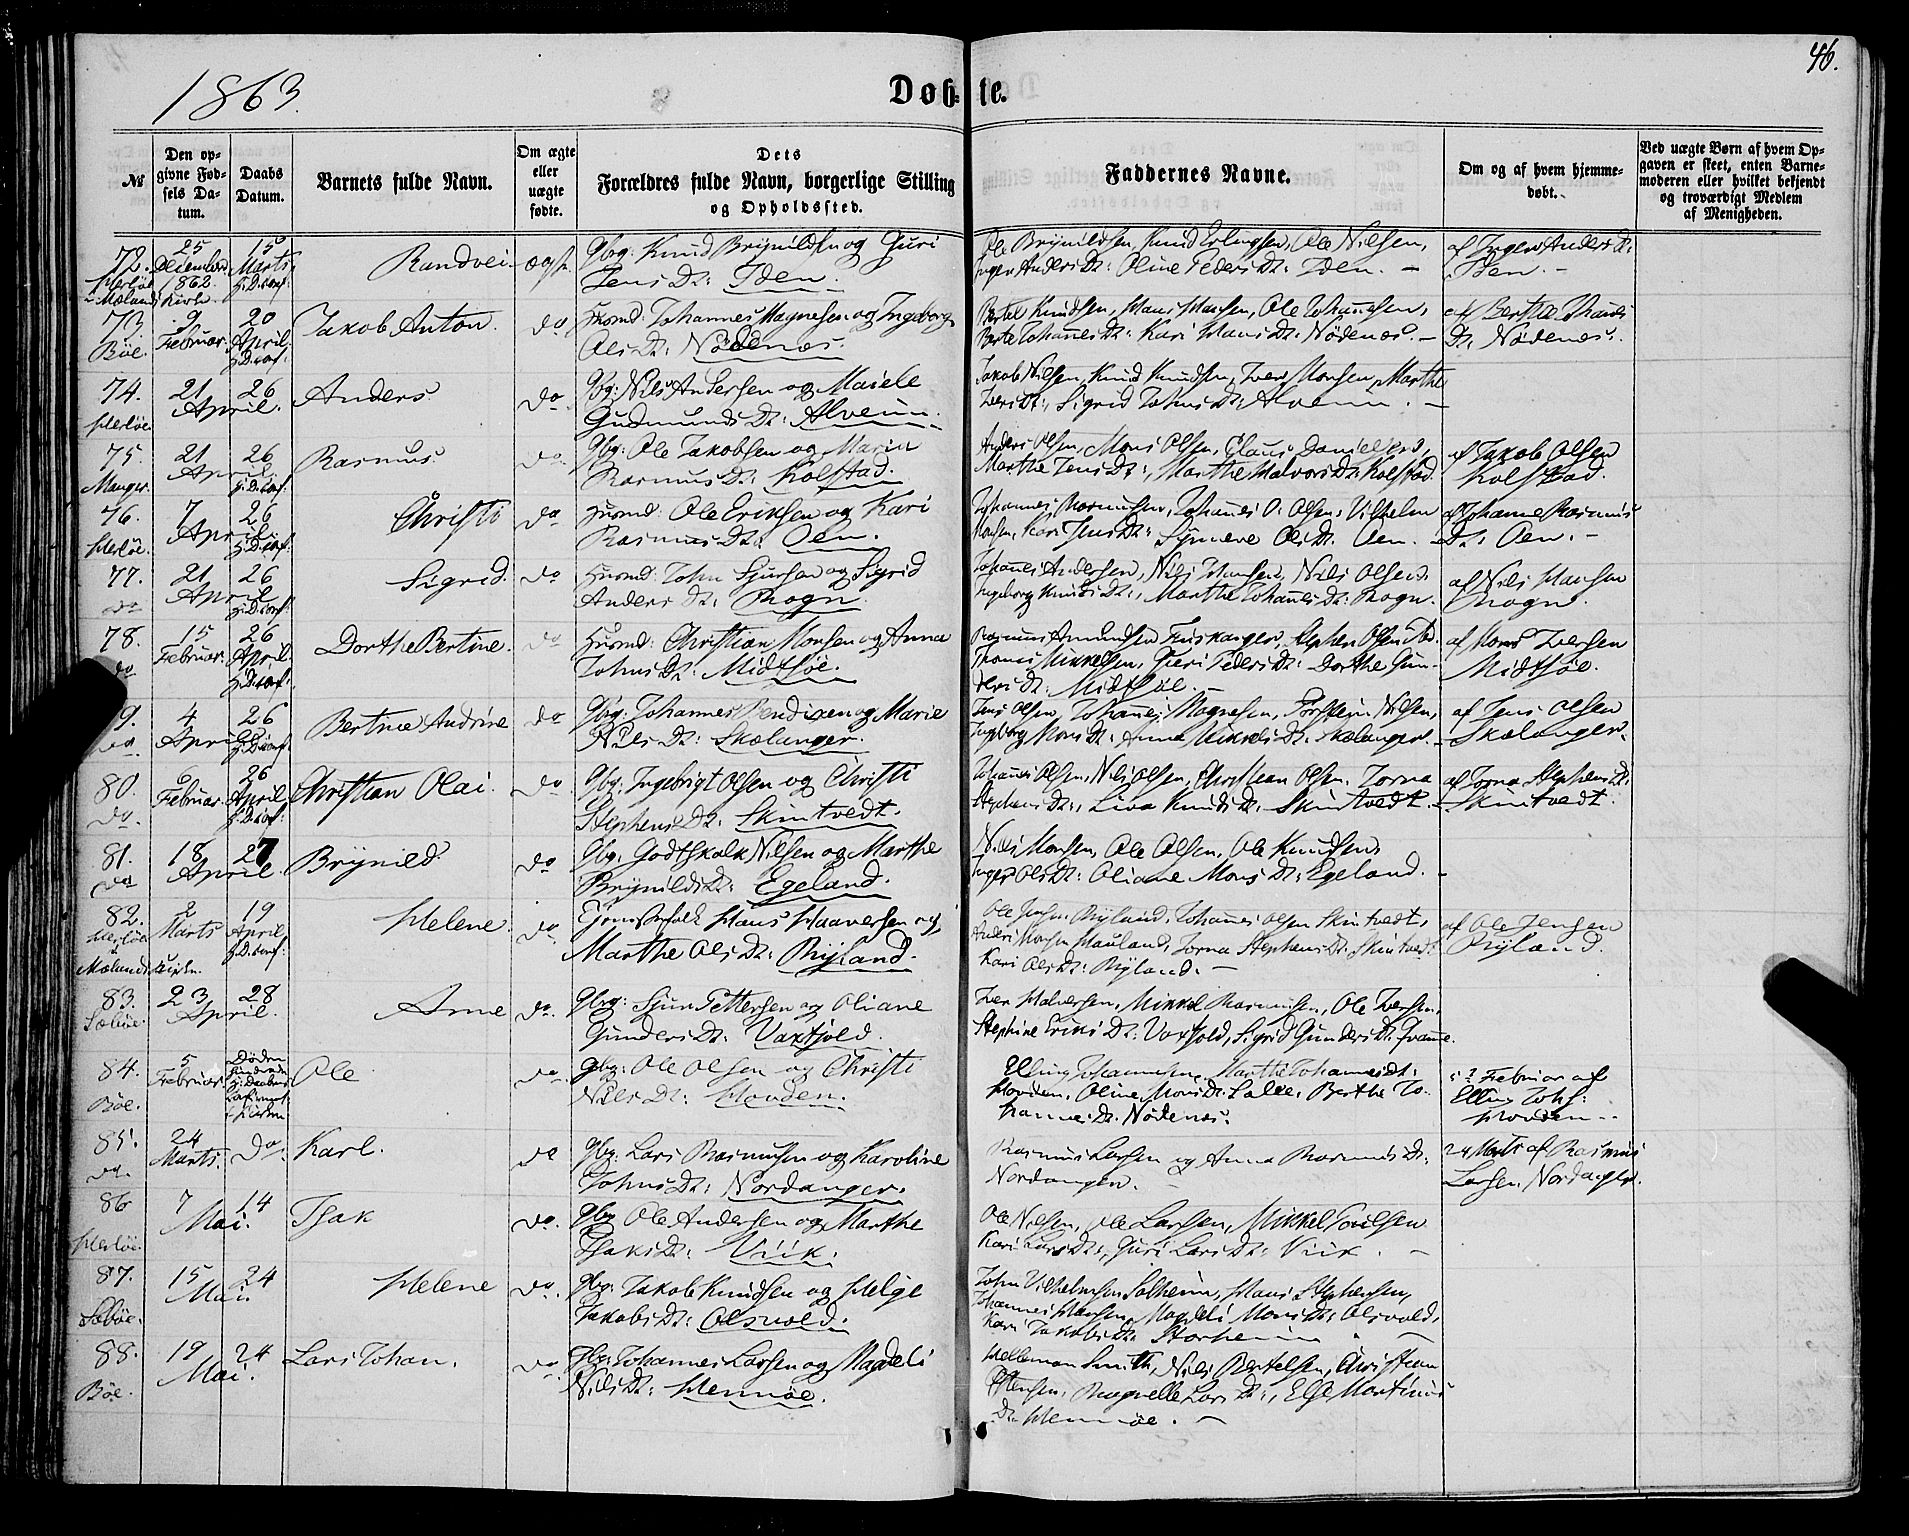 46.
1863.
Døb-te.
№
Den op-
givne Fød-
sels Da-
tum.
Daabs
Datum.
Barnets fulde Navn.
Om ægte
eller
uægte
fødte.
Dets
Forældres fulde Navn, borgerlige Stilling
og Opholdssted.
Faddernes Navne.
Om og af hvem hjemme-
døbt.
Ved uægte Børn af hvem Op-
gaven er skeet, enten Barne-
moderen eller hvilket bekjendt
og troværdigt Medlem
af Menigheden.
72. 25 December 1862 15 Marts Randvei ægte Gbrg: Knud Brynildsen og Guri
Jens Dt: Iden.
Ole Brynildsen, Knud Erlingsen, Ole Nilsen,
Inger Anders Dt: Oline Peders Dt: Iden. –
af Inger Anders Dt:
Iden. –
73. Böe. 9 Februar 20 April Jakob Anton. do Husmd: Johannes Magnesen og Ingeborg
Ols Dt: Nödenæs.
Bertel Knudsen, Hans Hansen, Ole Johannesen,
Berte Johannes Dt: Kari Hans Dt: Nödenæs. –
af Bertha Hans
Dt: Nödenæs.
74. Herlöe 21 April. 26 Anders do Gbg: Nils Andersen og Mariele
Gudmunds Dt: Alveim.
Jakob Nilsen, Knud Knudsen, Iver Monsen, Marthe
Ivers Dt:, Sigrid Johns Dt: Alveim. –
75. Manger. 21 April 26 Rasmus. do Gbg: Ole Jakobsen og Maria
Rasmus Dt: Kolstad.
Anders Olsen, Mons Olsen, Claus Danielsen,
Marthe Jens Dt:, Marthe Halvors Dt: Kolstad.
af Jakob Olsen
Kolstad.
76. Herlöe. 7 April 26 Christi do Husmd: Ole Eriksen og Kari
Rasmus Dt: Oen.
Johannes Rasmussen, Johannes O. Olsen, Vilhelm
Kari Jens Dt: Synneve Ols Dt. Oen.
af Johanne Rasmus
Dt: Oen. –
77. do 21 April 26 Sigrid. do Husmd: John Sjursen og Sigrid
Anders Dt: Rogn.
Johannes Andersen, Nils Hansen, Nils Olsen,
Ingeborg Knuds Dt:, Marthe Johannes Dt: Rogn.
af Nils Hansen
Rogn.
78. do 15 Februar. 26 April Dorthe Bertine. do Husmd: Christian Monsen og Anna
Johns Dt: Midtföe.
Rasmus Amundsen Stephen Olsen
Thomas Mikkelsen, Guri Peders Dt: Dorthe Gun-
ders Dt: Midtföe. –
af Mons Iversen
Midtföe.
9. do 4 April 26 Bertine Andrine do Gbrg: Johannes Bendixen og Marie
Nils Dt: Skalanger.
Jens Olsen, Johannes Magnesen, Torstein Nilsen,
Ingeborg Mons Dt: Anna Mikkels Dt: Skalanger.
af Jens Olsen
Skalanger.
80. do. 6 Februar. 26 April Christian Olai. do Gbg: Ingebrigt Olsen og Christi
Stephens Dt: Skintvedt.
Johannes Olsen, Nils Olsen, Christian Olsen, Jorna
Stephens Dt:, Liva Knuds Dt: Skintvedt.
af Jorna Stephens Dt:
Skintvedt.
81. do 18 April 27 Brynild. do Gbg: Godtskalk Nilsen og Marthe
Brynilds Dt: Egeland.
Nils Monsen, Ole Olsen, Ole Knudsen,
Inger Ols Dt: Oliane Mons Dt: Egeland. –
82. 2 Marts 19 April Helene. do Hans Haaversen og
Marthe Ols Dt: Ryland.
Ole Jensen Ryland, Johannes Olsen Skintvedt,
Anders Monsen Jorna Stephens Dt: Skintvedt.
Kari Ols Dt: Ryland. –
af Ole Jensen
Ryland.
83. Sæböe. 23 April. 28 Arne do. Gbrg: Sjur Pettersen og Oliane
Gunders Dt: Vaxtfold.
Iver Halversen, Mikkel Rasmussen, Ole Iversen,
Stephine Eriks Dt: Vaxfold, Sigrid Gunders Dt:
84. Böe. 5 Februar Ole do Gbg: Ole Olsen og Christi
Nils Dt: Hovden.
Elling Johannesen, Marthe Johannes Dt:
Hovden, Oline Mons Dt: Berthe Jo-
hannes Dt: Nödenæs.
Februar af
Elling Johs:
Hovden.
85. do. 24 Marts. do. Karl. do Gbg: Lars Rasmussen og Karoline
Johns Dt: Nordanger.
Rasmus Larsen og Anna Rasmus Dt:
Nordanger. –
24 Marts af Rasmus
Larsen Nordanger.
86 Herlöe. 7 Mai. 14 Isak do. Gbg Ole Andersen og Marthe
Isaks Dt: Viik.
Ole Nilsen, Ole Larsen, Mikkel Poulsen
Kari Lars Dt:, Guri Lars Dt: Viik. –
87. Sæböe. 15 Mai. 24 Helene do. Gbg: Jakob Knudsen og Helge
Jakobs Dt: Olsvold.
John Vilhelmsen Solheim, Hans Stephensen,
Johannes Hansen, Magdeli Mons Dt: Olsvold,
Kari Jakobs Dt: Storheim –
88. Böe. 19 Mai. 24 Lars Johan. do Gbg: Johannes Larsen og Magdeli
Nils Dt: Hennöe.
Smith, Nils Bertelsen, Christian
Ragnelle Lars Dt:, Else Martinus
Dt: Hennöe. –